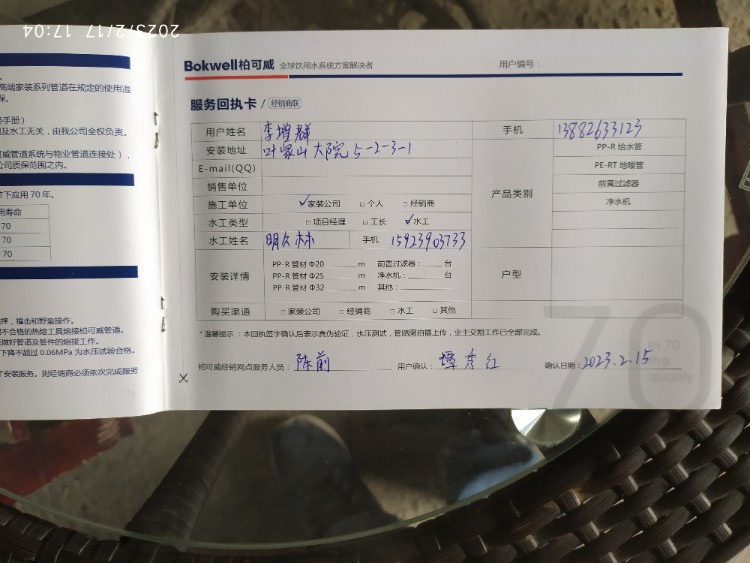 2023/2/17 17:04
高端家装系列管道在规定的使用温
保。
手册）
及水工无关，由我公司全权负责。
威管道系统与物业管道连接处），
公司质保范围之内。
下应用 70 年。
用寿命
70
70
70
押，撞击和野蛮操作。
不合格的热熔工具熔接柏可威管道。
做好管道及管件的熔接工作。
下降不超过 0.06MPa 为水压试验合格。
了安装服务。则经销商必须依次完成服务
Bokwell柏可威 全球饮用水系统方案解决者 用户编号：
服务回执卡 / 经销商联
用户姓名 李增群 手机 13882633123
安装地址 叶家山大院5-2-3-1 PP-R 给水管
E-mail(QQ) PE-RT 地暖管
销售单位 产品类别 前置过滤器
施工单位 ✓家装公司 □ 个人 □ 经销商 净水机
水工类型 □ 项目经理 □ 工长 ✓水工
水工姓名 明久林 手机 15923903733
安装详情 PP-R 管材 Φ20 m 前置过滤器： 台 户型
PP-R 管材 Φ25 m 净水机： 台
PP-R 管材 Φ32 m 其他：
购买渠道 □ 家装公司 □ 经销商 □ 水工 □ 其他
*温馨提示：本回执签字确认后表示真伪验证，水压测试，管路图拍摄上传，业主交割工作已全部完成。
70
in 70
the
quality
柏可威经销网点服务人员： 陈前 用户确认： 确认日期： 2023.2.15